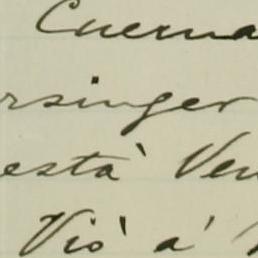 Cuerna
rsinger
està Ven
Viò a'